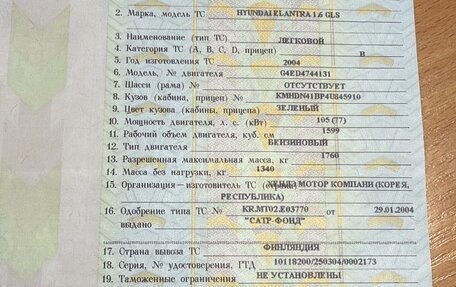 2. Марка, модель ТС HYUNDAI ELANTRA 1.6 GLS
3. Наименование (тип ТС) ЛЕГКОВОЙ
4. Категория ТС (А, В, С, D, прицеп) В
5. Год изготовления ТС 2004
6. Модель, № двигателя G4ED4744131
7. Шасси (рама) № ОТСУТСТВУЕТ
8. Кузов (кабина, прицеп) № KMHDN41BP4U845910
9. Цвет кузова (кабины, прицепа) ЗЕЛЕНЫЙ
10. Мощность двигателя, л. с. (кВт) 105 (77)
11. Рабочий объем двигателя, куб. см 1599
12. Тип двигателя БЕНЗИНОВЫЙ
13. Разрешенная максимальная масса, кг 1760
14. Масса без нагрузки, кг 1340
15. Организация—изготовитель ТС (страна) ХЕНДЭ МОТОР КОМПАНИ (КОРЕЯ,
РЕСПУБЛИКА)
16. Одобрение типа ТС № KR.MT02.E03770 от 29.01.2004
выдано "САТР-ФОНД"
17. Страна вывоза ТС ФИНЛЯНДИЯ
18. Серия, № удостоверения, ГТД 10118200/250304/0002173
19. Таможенные ограничения НЕ УСТАНОВЛЕНЫ